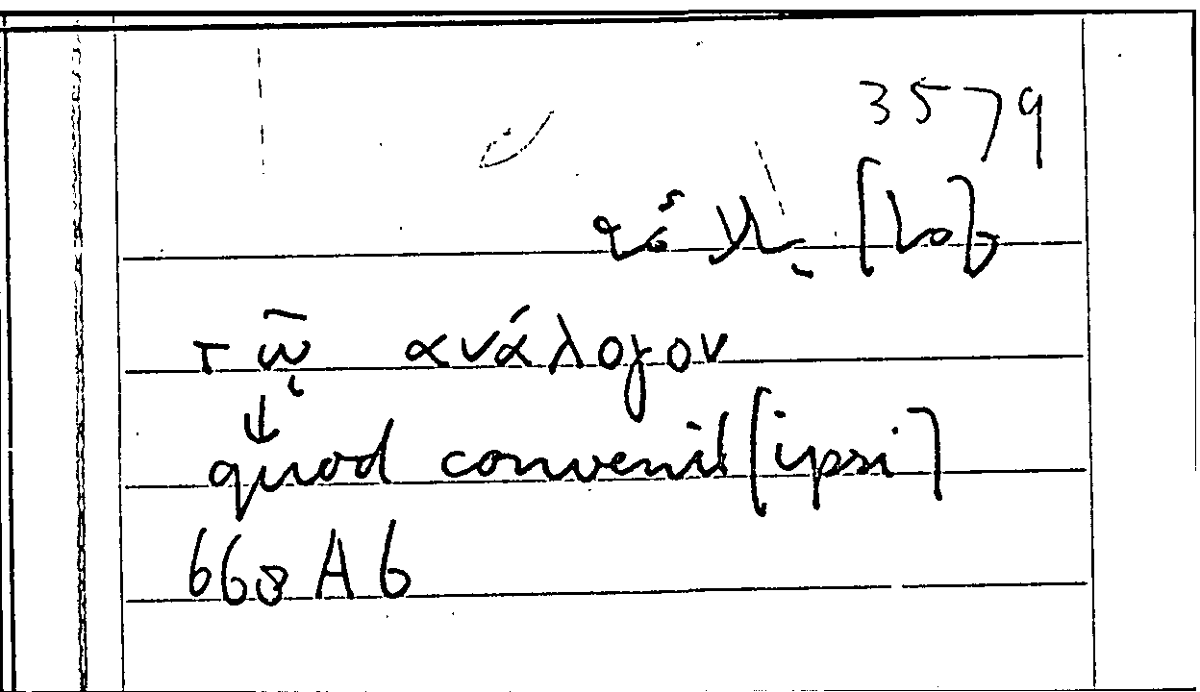 3579
τῷ ανάλογον
↓
quod convenit [ipsi]
668 A 6